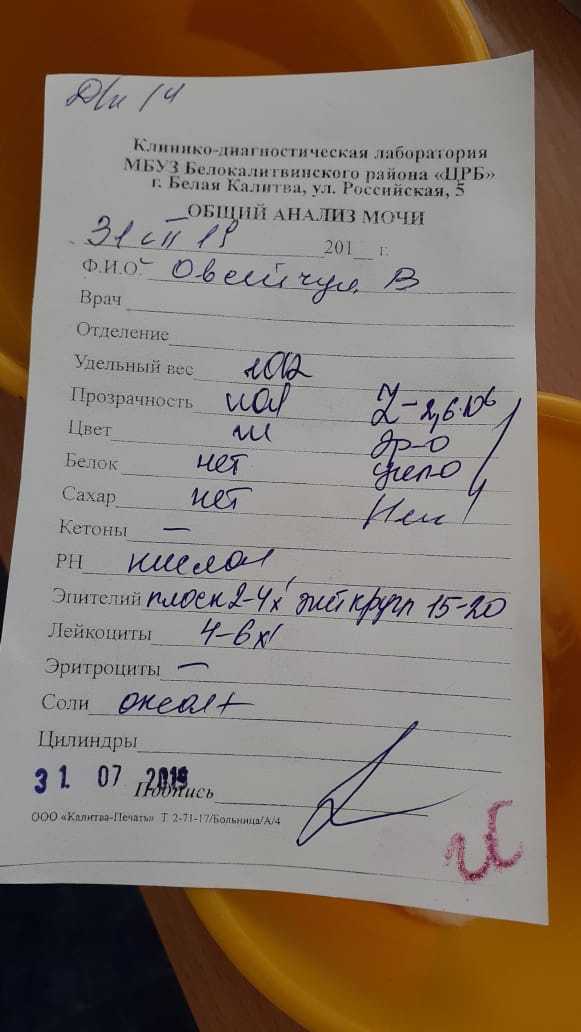 Клинико-диагностическая лаборатория
МБУЗ Белокалитвинского района «ЦРБ»
г. Белая Калитва, ул. Российская, 5
ОБЩИЙ АНАЛИЗ МОЧИ
31 VII 19 201__ г.
Ф.И.О. В
Врач
Отделение
Удельный вес 1012
Прозрачность пол L-2,6·10⁶
Цвет эр-0
Белок нет цил-0
Сахар нет
Кетоны –
PH кислая
Эпителий плоск 2-4 15-20
Лейкоциты 4-6
Эритроциты –
Соли оксал+
Цилиндры
31. 07 2019
Подпись
ООО «Калитва-Печать» Т 2-71-17/Больница/А/4